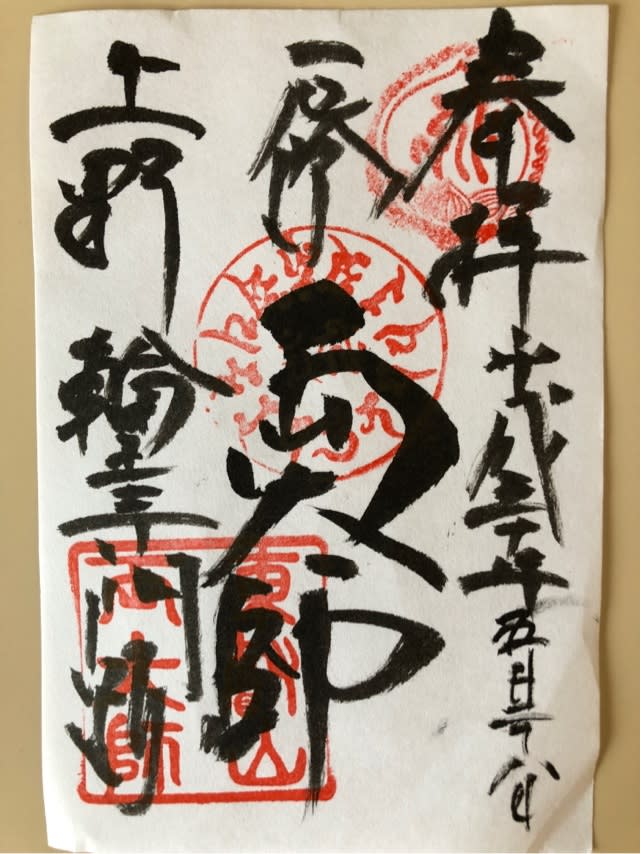 奉拝 平成三十年五月廿八日
両大師
上野 輪王寺門跡
東叡山
両大師